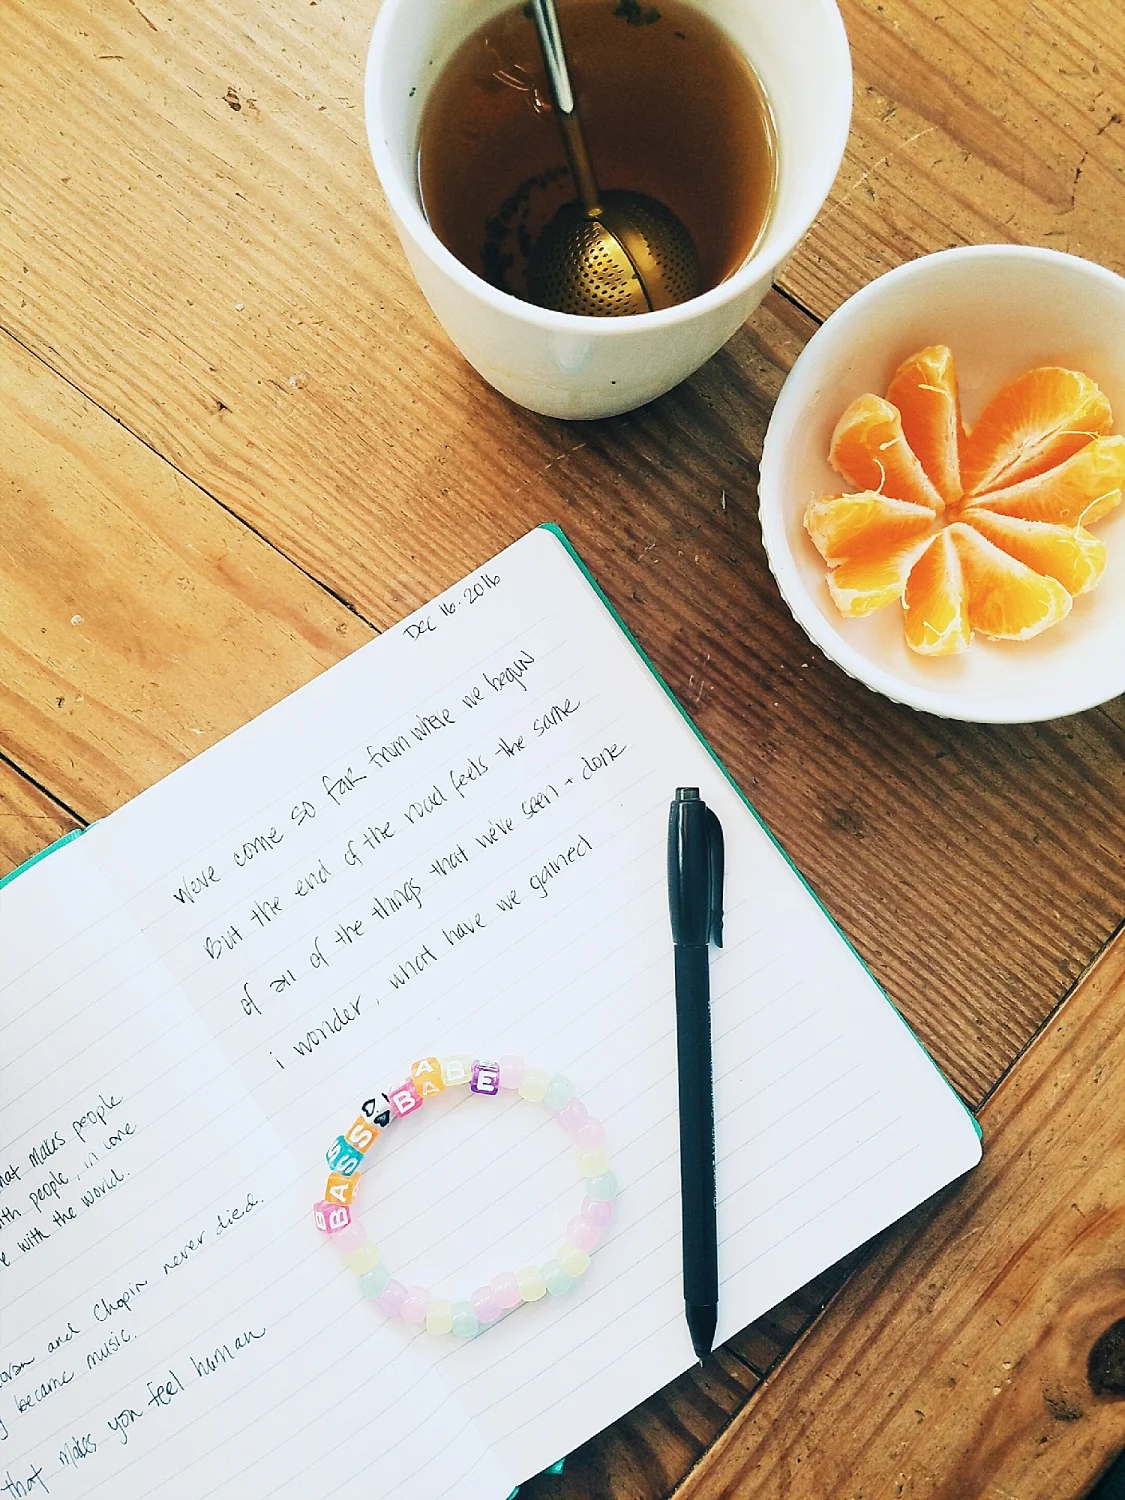 hat makes people
ith people, in love
e with the world.
and Chopin never died.
became music.
that makes you feel human
Dec 16. 2016
We've come so far from where we begun
But the end of the road feels the same
of all of the things that we've seen + done
i wonder, what have we gained
BASS BABE